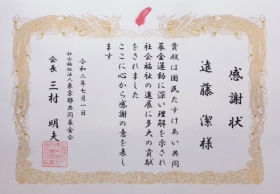 感謝状
遠藤 潔様
貴殿は国民たすけあい共同
募金運動に深い理解を示され
社会福祉の進展に多大の貢献
をされました
ここに心から感謝の意を表し
ます
令和二年七月一日
社会福祉法人東京都共同募金会
会長 三村 明夫